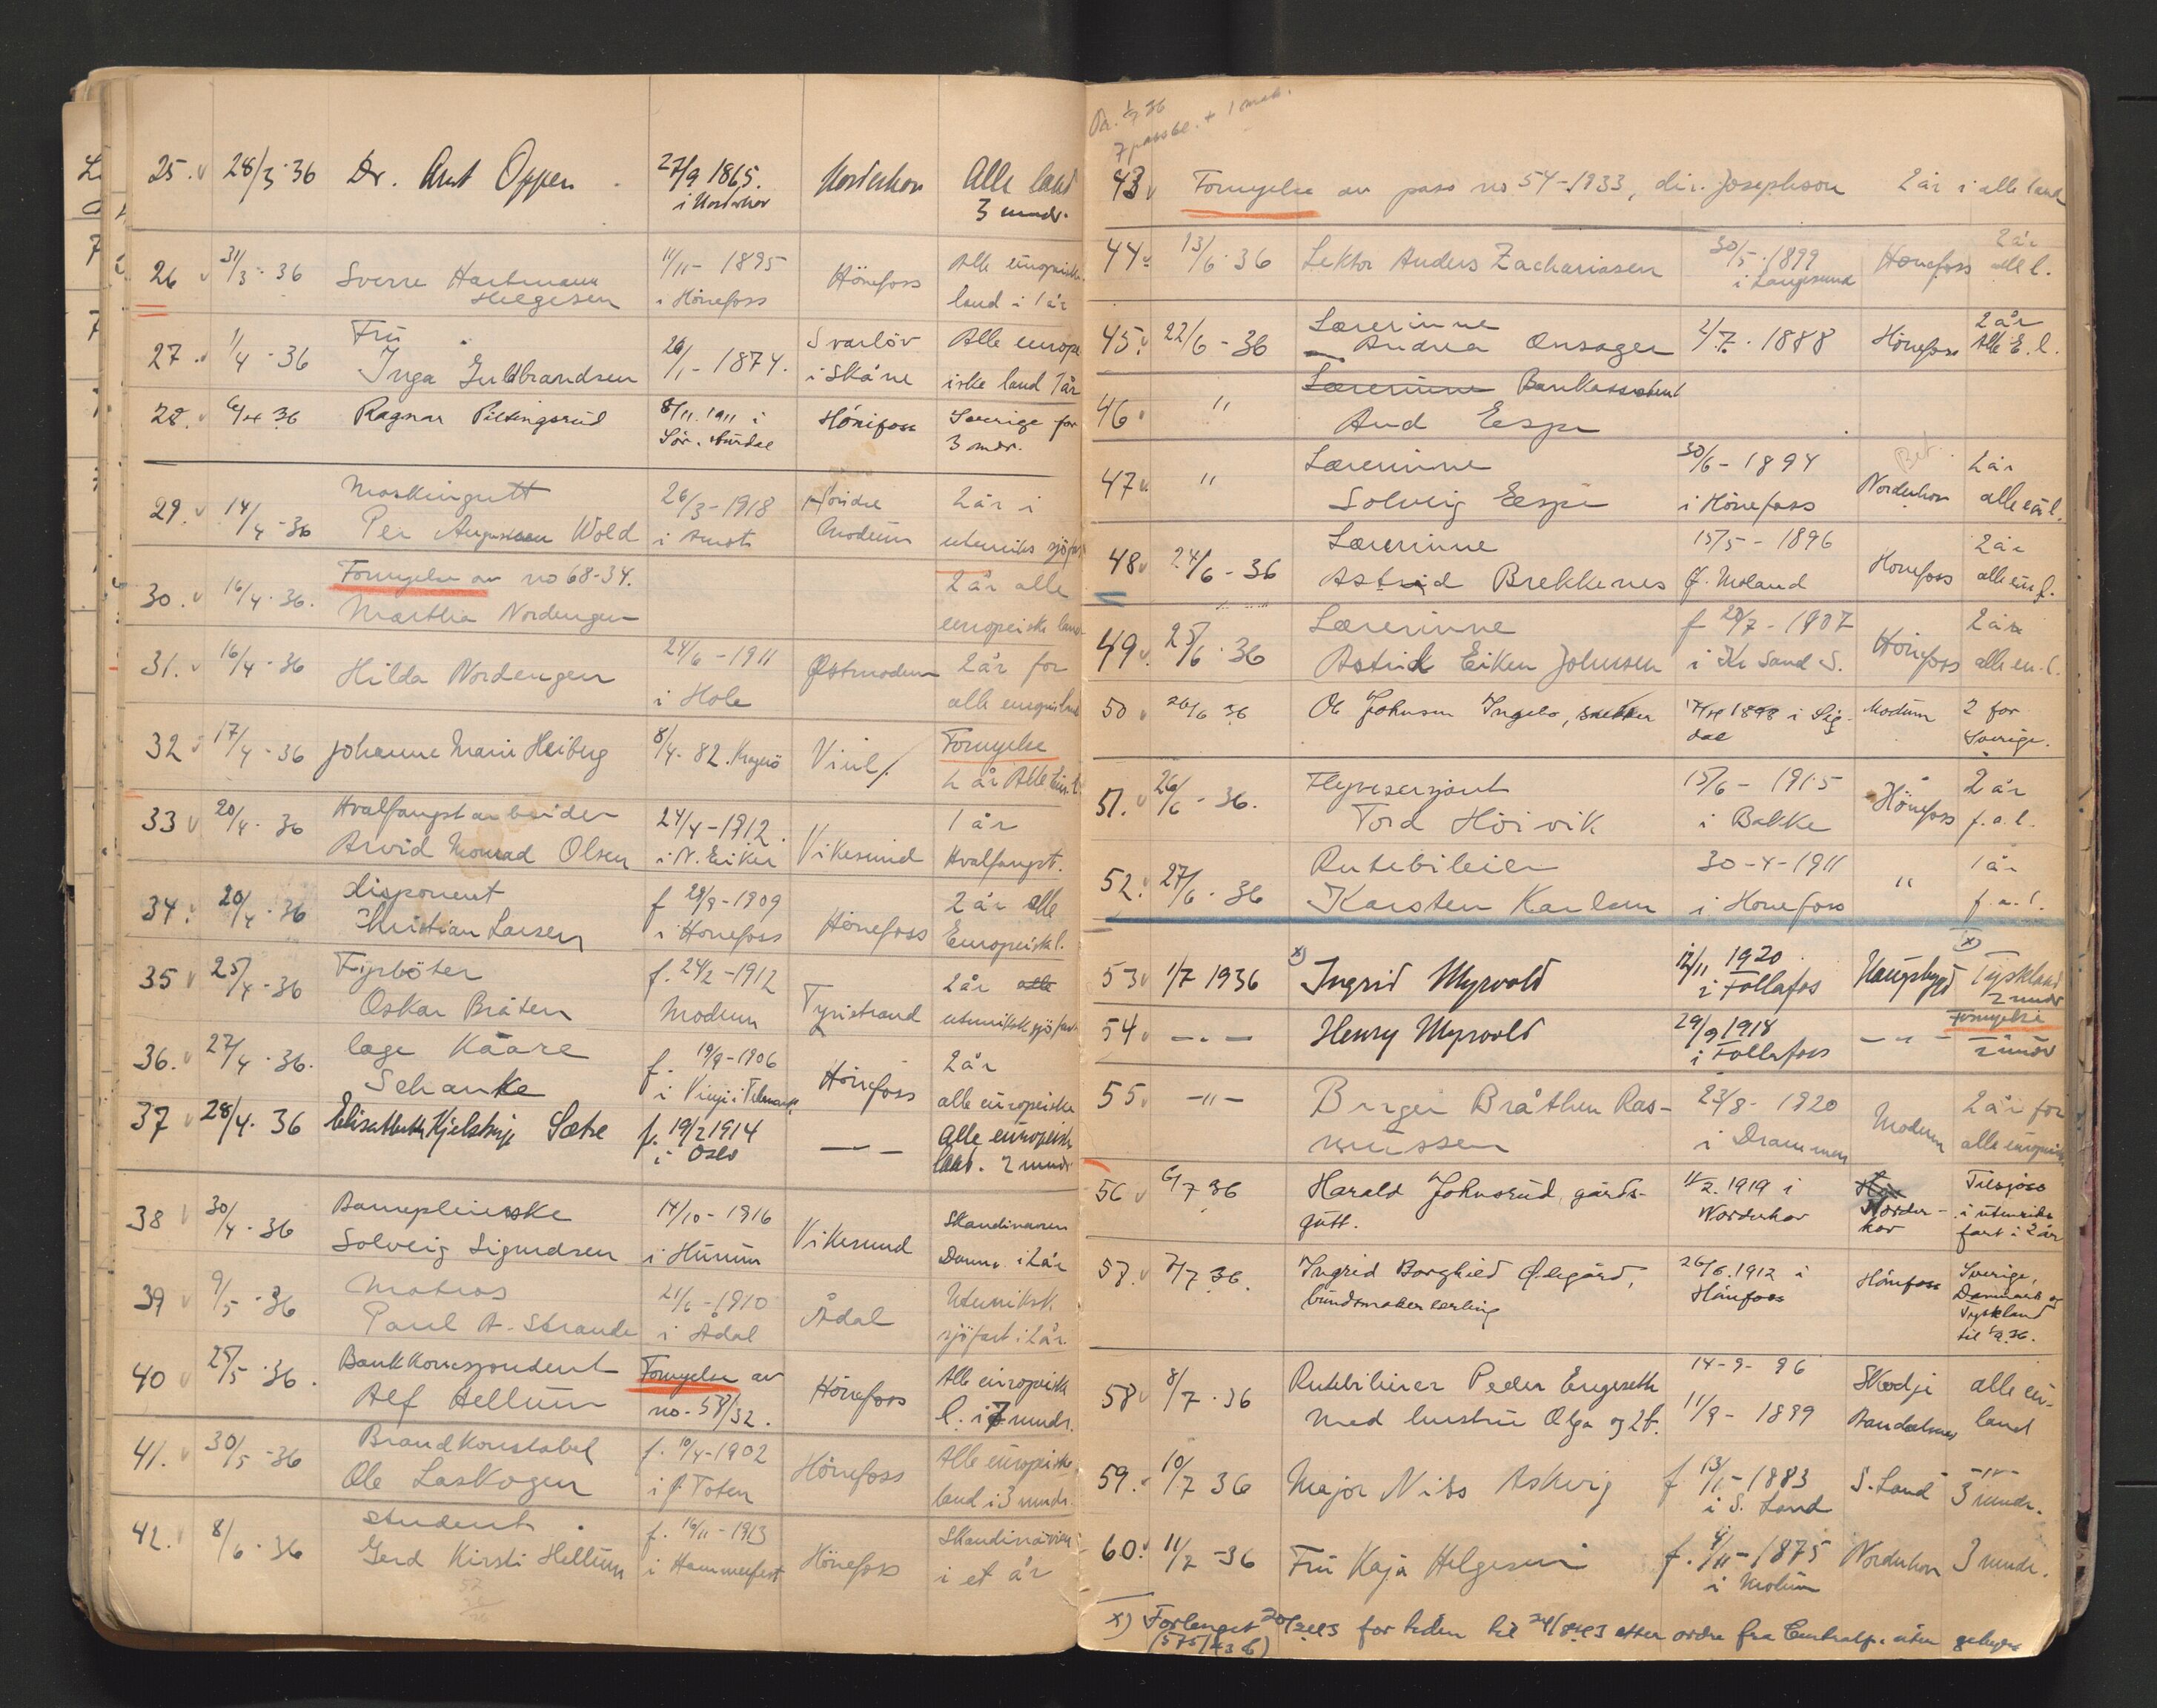 25. 28/3-36 Dr. Arnt Oppen 27/9 1865. Norderhov Alle land
i Norderhov 3 mndr.
26 31/3-36 Sverre Hartmann 11/11-1895 Hönefoss Alle europeiske
Helgesen i Hönefoss land i 1 år
27. 1/4-36 Fru Svarlöv Alle europe
Inga Guldbrandsen 26/1-1874. i Skåne iske land 1 år
28. 6/4 36 Ragnar Piltingsrud 8/11.1911 i Hönefoss Sverige for
Sör-Aurdal 3 mdr.
29. 14/4-36 Maskingutt 26/3-1918 Söndre 2 år i
Per Wold i Åmot Modum utenriks sjöfart
30. 16/4-36. Fornyelse av no 68-34. 2 år alle
Martha Nordengen europeiske land
31. 16/4-36 Hilda Nordengen 24/6-1911 Östmodum 2 år for
i Hole alle europ land
32 17/4-36 Johanne Marie Heiberg 8/4-82. Kragerö Viul Fornyelse
2 år Alle Eur. l.
33 20/4-36 Hvalfangstarbeider 24/4-1912. Vikesund 1 år
Arvid Monrad Olsen i N. Eiker Hvalfangst.
34. 20/4-36 disponent f 28/9-1909 Hönefoss 2 år alle
Christian Larsen i Hönefoss Europeisk l.
35 25/4-36 Fyrböter f. 24/2-1912 Tyristrand 2 år alle
Oskar Bråten Modum utenriksk sjöfart
36. 27/4-36. Kåare f. 19/9-1906 Hönefoss 2 år
Schanke i Vinje i Telemark alle europeiske
37 28/4-36 Elisabeth Kjelstrup Sætre f. 19/2 1914 — " — Alle europeiske
i Oslo land. 2 mndr
38 30/4-36 Barnepleierske 14/10-1916 Vikesund Skandinavien
Solveig Sigurdsen i Hurum Danm. i 2 år
39 9/5-36 Matros 21/6-1910 Ådal Utenriksk
Paul A. Strande i Ådal sjöfart i 2 år.
40 25/5-36. Bankkorrespondent Fornyelse av Hönefoss Alle europeisk
Alf Hellum no-58/32. l. i 7 mndr.
41. 30/5-36 Brandkonstabel f. 10/4-1902 Hönefoss Alle europeiske
Ole Laskogen i Ø. Toten land i 3 mndr.
42. 8/6-36 student f. 16/11-1913 Hönefoss Skandinavien
Gerd Kirsti Hellum i Hammerfest i et år
7 passbl. + 1
43 Fornyelse av pass no 54-1933, dir. Josephson 2 år i alle land
44. 13/6-36 Lektor Anders Zachariasen 30/5-1899 Hönefoss 2 år
i Langesund alle l.
45. 22/6-36 Lærerinne 2/7.1888 Hönefoss 2 år
Andrea Onsager Alle E. l.
46 " Lærerinne Bankassistent
Aud Espe
47 " Lærerinne 30/6-1894 Norderhov 2 år
Solveig Espe i Hönefoss alle eur l.
48 24/6-36 Lærerinne 15/5-1896 Hönefoss 2 år
Astrid Brekkenes Ø. Moland alle eur l.
49. 25/6-36 Lærerinne f 28/7-1907 Hönefoss 2 år
Astrid Eiken Johnsen i Kr Sand S. alle eu. l.
50 26/6 36 Ol Johnsen Ingelo, snekker 17/4 1898 i Sig- Modum 2 for
dal Sverige.
51. 26/6-36. Flyversersjant 15/6-1915 Hönefoss 2 år
Tord Höivik i Bakke f.a.l.
52. 27/6-36 Rutebileier 30-4-1911 " 1 år
Karsten Karlsen i Hönefoss f.a.l.
x)
53 1/7 1936 x) Ingrid Myrvold 12/11 1920 Haugsbygd Tyskland
i Follafos 2 mndr
54 —"— Henry Myrvold 29/9 1918 —"— Fornyelse
i Follafoss 2 mndr
55 —"— Birger Bråthen Ras- 23/8-1920 Modum 2 år for
mussen i Drammen alle europeisk
56 6/7 36 Harald Johnsrud, gårds- 11/2.1919 i Norder- Tilsjöss
gutt. Norderhov hov i utenriks
fart i 2 år
57. 7/7 36. Ingrid Borghild Ødegård, 26/6.1912 i Hönefoss Sverige,
buntmakerlærling Hönefoss Danmark og
Tyskland
til 1/9.36.
58 8/7-36 Rutebileier Peder Engeseth 14-9-96 Skodje alle eu-
med hustru Olga og 2 b. 11/9-1899 land
59. 10/7 36 Major Nils Askvig f 13/11-1883 S. Land —"—
i S. Land 3 mndr.
60. 11/7-36 Fru Kaja Helgesen f. 4/11-1875 Norderhov 3 mndr.
i Modum
x) Forlenget for tiden til 24/8-43 etter ordre fra Centralp. uten gebyr
(575/43 b)